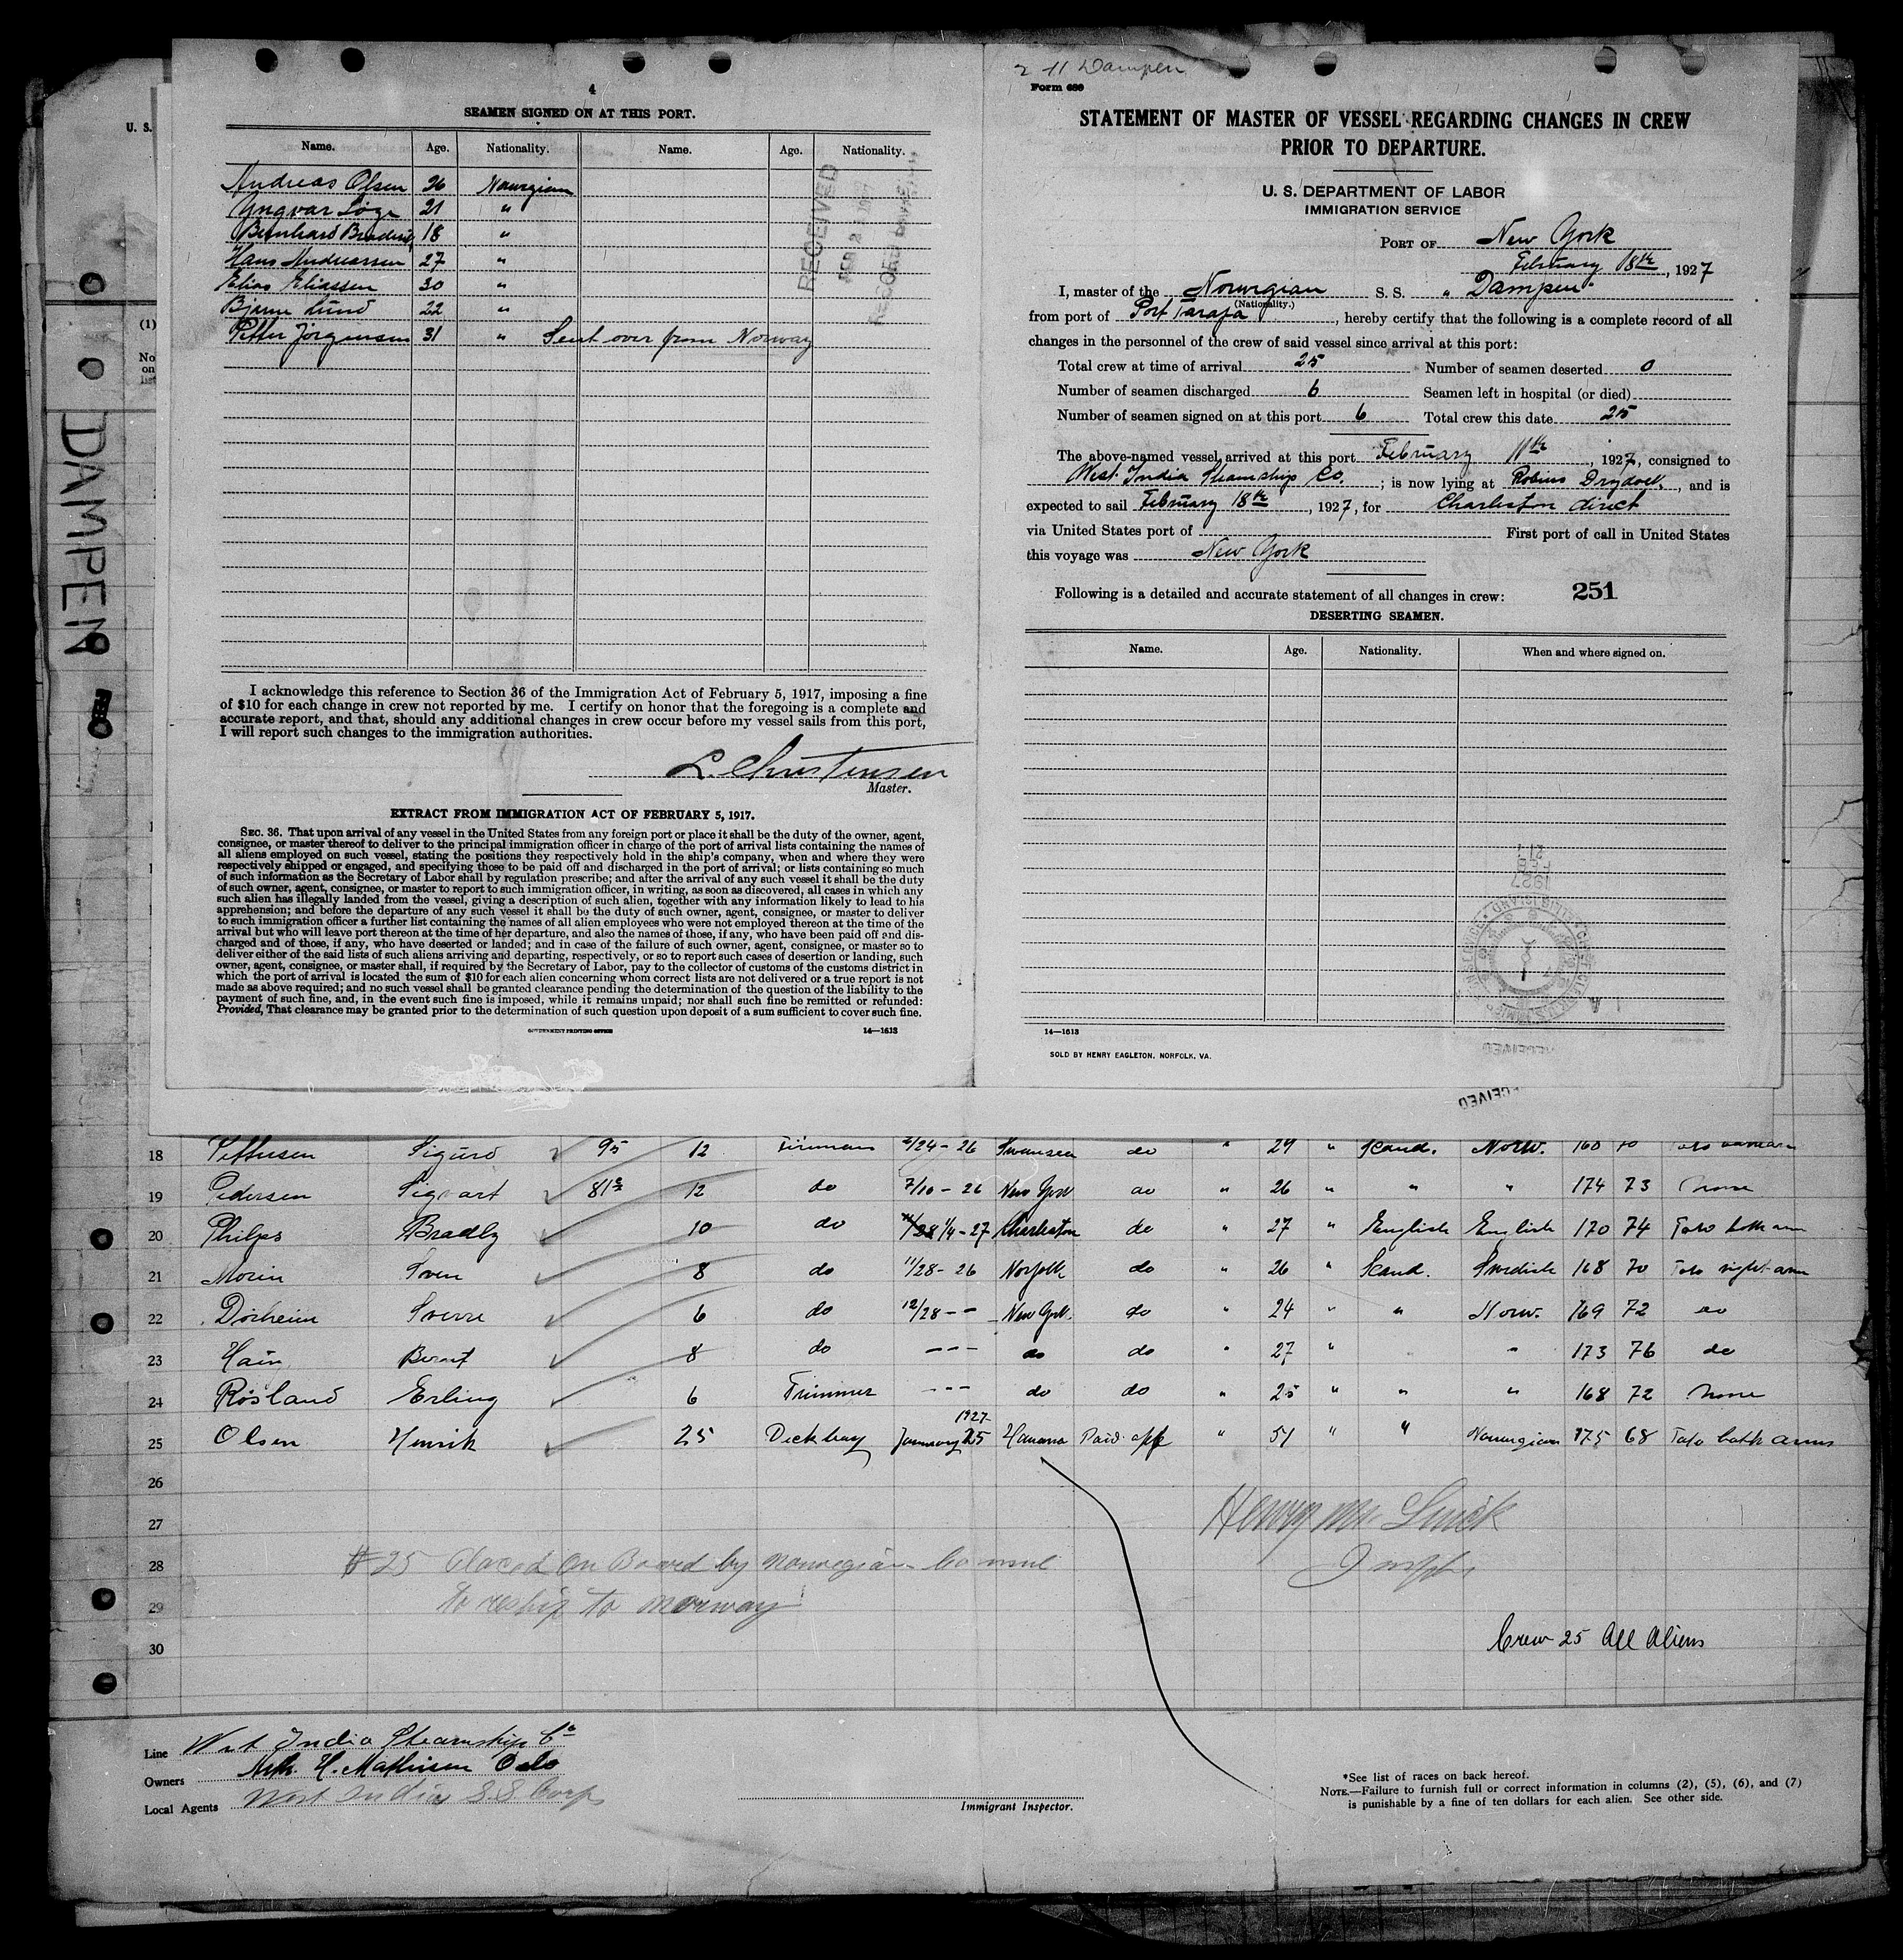 4
SEAMEN SIGNED ON AT THIS PORT.
Name. Age. Nationality. Name. Age. Nationality.
Andreas Olsen 26 Norwegian
Yngvar 21 "
Bernhard 18 "
Hans Andreassen 27 "
Elias Eliassen 30 "
Bjarne Lund 22 "
Petter Jörgensen 31 " Sent over from Norway
RECEIVED
I acknowledge this reference to Section 36 of the Immigration Act of February 5, 1917, imposing a fine
of $10 for each change in crew not reported by me. I certify on honor that the foregoing is a complete and
accurate report, and that, should any additional changes in crew occur before my vessel sails from this port,
I will report such changes to the immigration authorities.
L. Christensen
Master.
EXTRACT FROM IMMIGRATION ACT OF FEBRUARY 5, 1917.
SEC. 36. That upon arrival of any vessel in the United States from any foreign port or place it shall be the duty of the owner, agent,
consignee, or master thereof to deliver to the principal immigration officer in charge of the port of arrival lists containing the names of
all aliens employed on such vessel, stating the positions they respectively hold in the ship's company, when and where they were
respectively shipped or engaged, and specifying those to be paid off and discharged in the port of arrival; or lists containing so much
of such information as the Secretary of Labor shall by regulation prescribe; and after the arrival of any such vessel it shall be the duty
of such owner, agent, consignee, or master to report to such immigration officer, in writing, as soon as discovered, all cases in which any
such alien has illegally landed from the vessel, giving a description of such alien, together with any information likely to lead to his
apprehension; and before the departure of any such vessel it shall be the duty of such owner, agent, consignee, or master to deliver
to such immigration officer a further list containing the names of all alien employees who were not employed thereon at the time of the
arrival but who will leave port thereon at the time of her departure, and also the names of those, if any, who have been paid off and dis-
charged and of those, if any, who have deserted or landed; and in case of the failure of such owner, agent, consignee, or master so to
deliver either of the said lists of such aliens arriving and departing, respectively, or so to report such cases of desertion or landing, such
owner, agent, consignee, or master shall, if required by the Secretary of Labor, pay to the collector of customs of the customs district in
which the port of arrival is located the sum of $10 for each alien concerning whom correct lists are not delivered or a true report is not
made as above required; and no such vessel shall be granted clearance pending the determination of the question of the liability to the
payment of such fine, and, in the event such fine is imposed, while it remains unpaid; nor shall such fine be remitted or refunded:
Provided, That clearance may be granted prior to the determination of such question upon deposit of a sum sufficient to cover such fine.
GOVERNMENT PRINTING OFFICE 14—1613
2 11 Dampen
Form 689
STATEMENT OF MASTER OF VESSEL REGARDING CHANGES IN CREW
PRIOR TO DEPARTURE.
U. S. DEPARTMENT OF LABOR
IMMIGRATION SERVICE
PORT OF New York
February 18th, 1927
I, master of the Norwegian S. S. "Dampen"
(Nationality.)
from port of Port Tarafa, hereby certify that the following is a complete record of all
changes in the personnel of the crew of said vessel since arrival at this port:
Total crew at time of arrival 25 Number of seamen deserted 0
Number of seamen discharged 6 Seamen left in hospital (or died)
Number of seamen signed on at this port 6 Total crew this date 25
The above-named vessel arrived at this port February 11th, 1927, consigned to
West India Steamship Co.; is now lying at Robins Drydock, and is
expected to sail February 18th, 1927, for Charleston direct
via United States port of First port of call in United States
this voyage was New York
Following is a detailed and accurate statement of all changes in crew: 251
DESERTING SEAMEN.
Name. Age. Nationality. When and where signed on.
14—1613
SOLD BY HENRY EAGLETON, NORFOLK, VA.
U. S.
(1)
No
on
list
DAMPEN
18 Sigurd 95 12 Fireman 2/24-26 Swansea do " 29 " Scand. Norw. 168 70
19 Pedersen Sigvart 12 do 7/10-26 New York do " 26 " " " 174 73 None
20 Philps Bradly 10 do 1/4-27 Charleston do " 27 " English English 170 74 Tato both arm
21 Morin Sven 8 do 11/28-26 Norfolk do " 26 " Scand. Swedish 168 70 Tato right arm
22 Dorheim Sverre 6 do 12/28-- New York do " 24 " " Norw. 169 72 do
23 Hain Bernt 8 do --- do do " 27 " " " 173 76 do
24 Rösland Erling 6 Trimmer --- do do " 25 " " " 168 72 None
25 Olsen Henrik 25 Deckboy January 25 1927 Havana Paid off " 51 " " Norwegian 175 68 Tato both arms
26
27
28
29
30
#25 Placed on Board by Norwegian Consul
to reship to Norway
Crew 25 All Aliens
Line West India Steamship Co
Owners H. Mathisen Oslo
Local Agents West India S.S. Corp
Immigrant Inspector.
*See list of races on back hereof.
NOTE.—Failure to furnish full or correct information in columns (2), (5), (6), and (7)
is punishable by a fine of ten dollars for each alien. See other side.